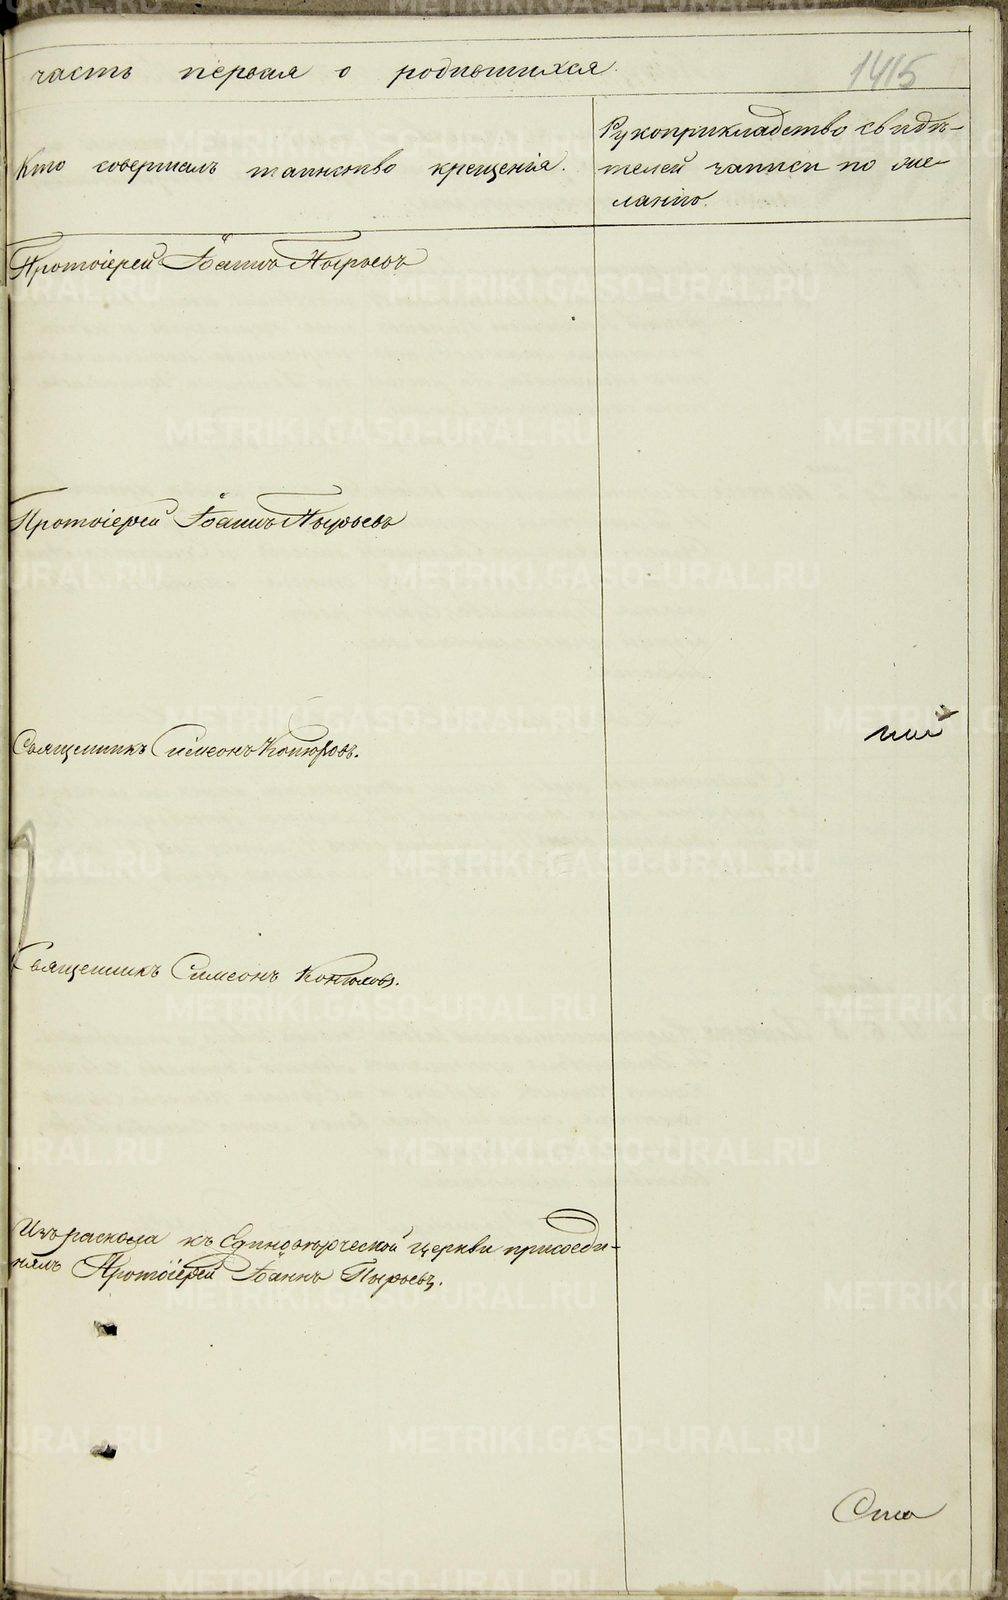 часть первая о родившихся
1415
Кто совершалъ таинство крещенія.
Рукоприкладство свидѣ-
телей записи по же-
ланію.
Протоіерей Іоаннъ Пырьевъ
Протоіерей Іоаннъ Пырьевъ
Священникъ Симеонъ
Священникъ Симеонъ Конюховъ.
Изъ раскола къ Единовѣрческой церкви присоеди-
нялъ Протоіерей Іоаннъ Пырьевъ.
METRIKI.GASO-URAL.RU